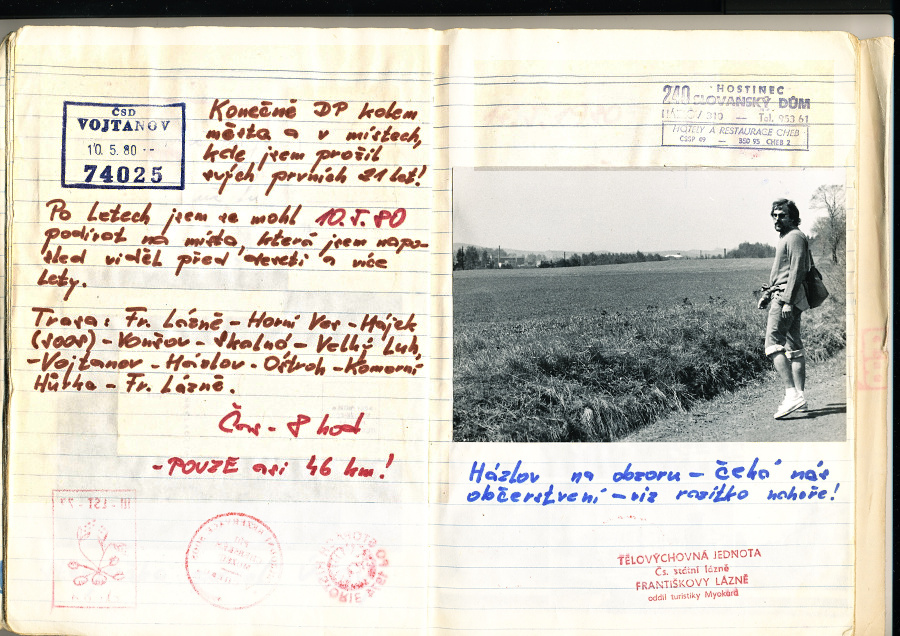 ČSD
VOJTANOV
10. 5. 80
74025
Konečně DP kolem
města a v místech,
kde jsem prožil
svých prvních 21 let!
Po letech jsem se mohl 10.5.80
podívat na místa, která jsem napo-
sled viděl před deseti a více
lety.
Trasa: Fr. Lázně - Horní Ves - Hájek
(Soos) - Vonšov - Skalná - Velký Luh,
- Vojtanov - Házlov - Ostroh - Komorní
Hůrka - Fr. Lázně.
Čas - 8 hod
- POUZE asi 46 km!
240 HOSTINEC
SLOVANSKÝ DŮM
Tel. 953 61
HOTELY A RESTAURACE CHEB
ČSSP 49 — 350 95 CHEB 2
Házlov na obzoru - čeká nás
občerstvení - viz razítko nahoře!
TĚLOVÝCHOVNÁ JEDNOTA
Čs. státní lázně
FRANTIŠKOVY LÁZNĚ
oddíl turistiky Myokard